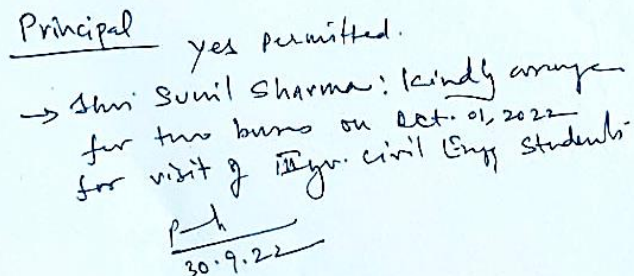 Principal
yes permitted.
→ Shri Sunil Sharma: kindly arrange
for two buses on Oct. 01, 2022
for visit of III yr. civil Engg students.
30.9.22